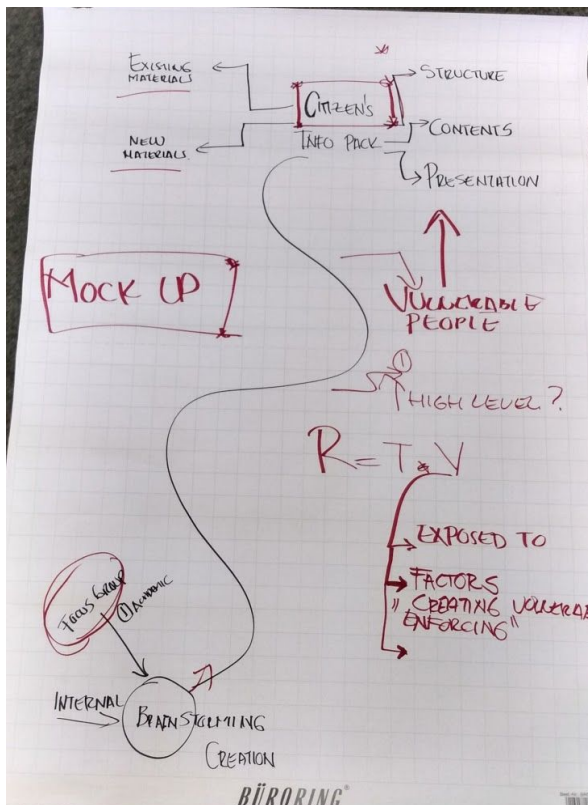 EXISTING
MATERIALS
NEW
MATERIALS
CITIZEN'S
INFO PACK
STRUCTURE
CONTENTS
PRESENTATION
MOCK UP
VULNERABLE
PEOPLE
1
HIGH LEVEL?
R = T · V
EXPOSED TO
FACTORS
" CREATING
ENFORCING "
FOCUS GROUP
1 ACADEMIC
INTERNAL
BRAINSTORMING
CREATION
BÜRORING®